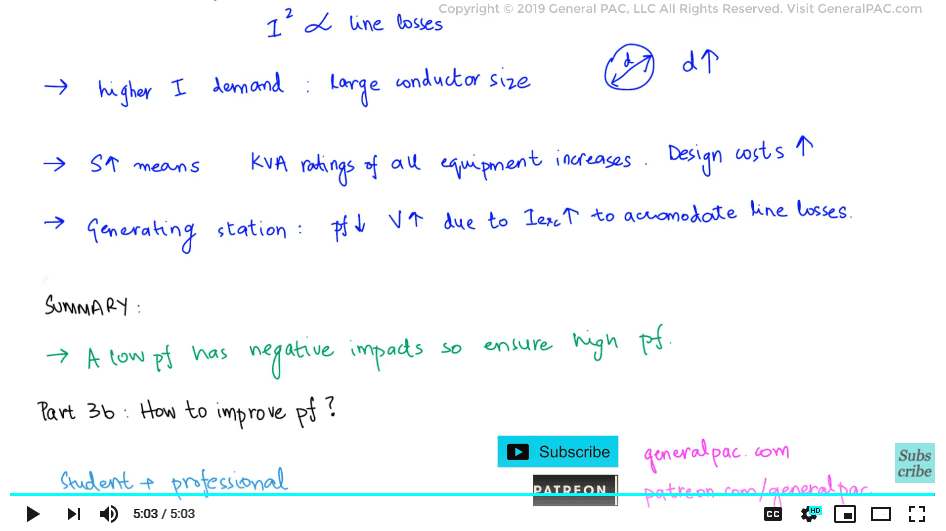 Copyright © 2019 General PAC, LLC All Rights Reserved. Visit GeneralPAC.com
I² ∝ line losses
→ higher I demand : Large conductor size d d↑
→ S↑ means KVA ratings of all equipment increases. Design costs ↑
→ Generating station : pf↓ V↑ due to Iexc↑ to accomodate line losses.
SUMMARY :
→ A low pf has negative impacts so ensure high pf.
Part 3b : How to improve pf ?
Subscribe generalpac.com
Subs
cribe
Student + professional PATREON patreon.com/generalpac
5:03 / 5:03 CC HD